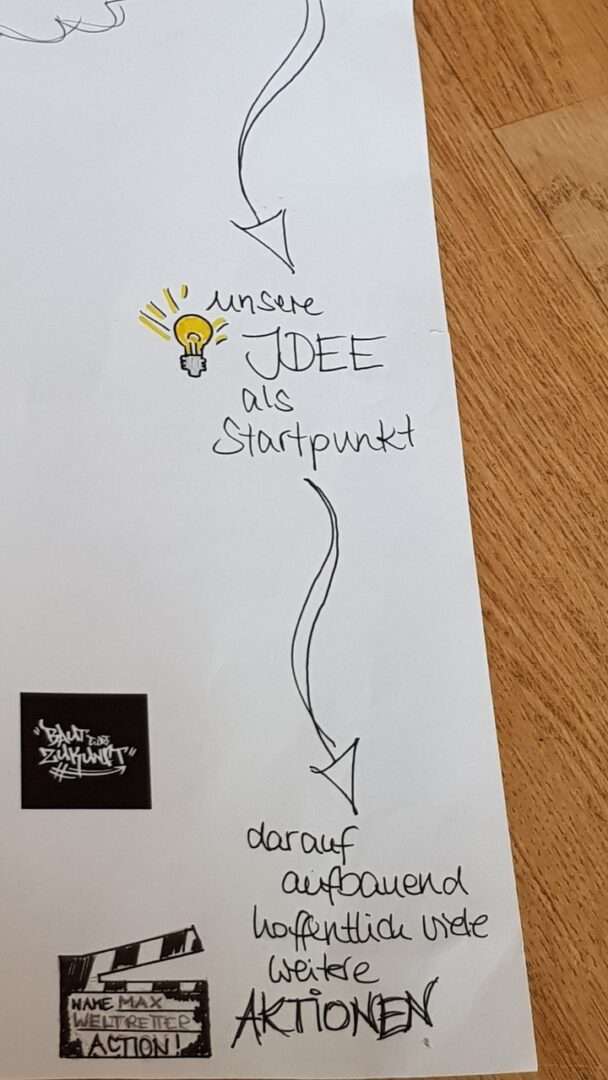 unsere
IDEE
als
Startpunkt
"BAUT
ZUKUNFT"
darauf
aufbauend
hoffentlich viele
weitere
AKTIONEN
NAME MAX
WELTRETTER
ACTION!